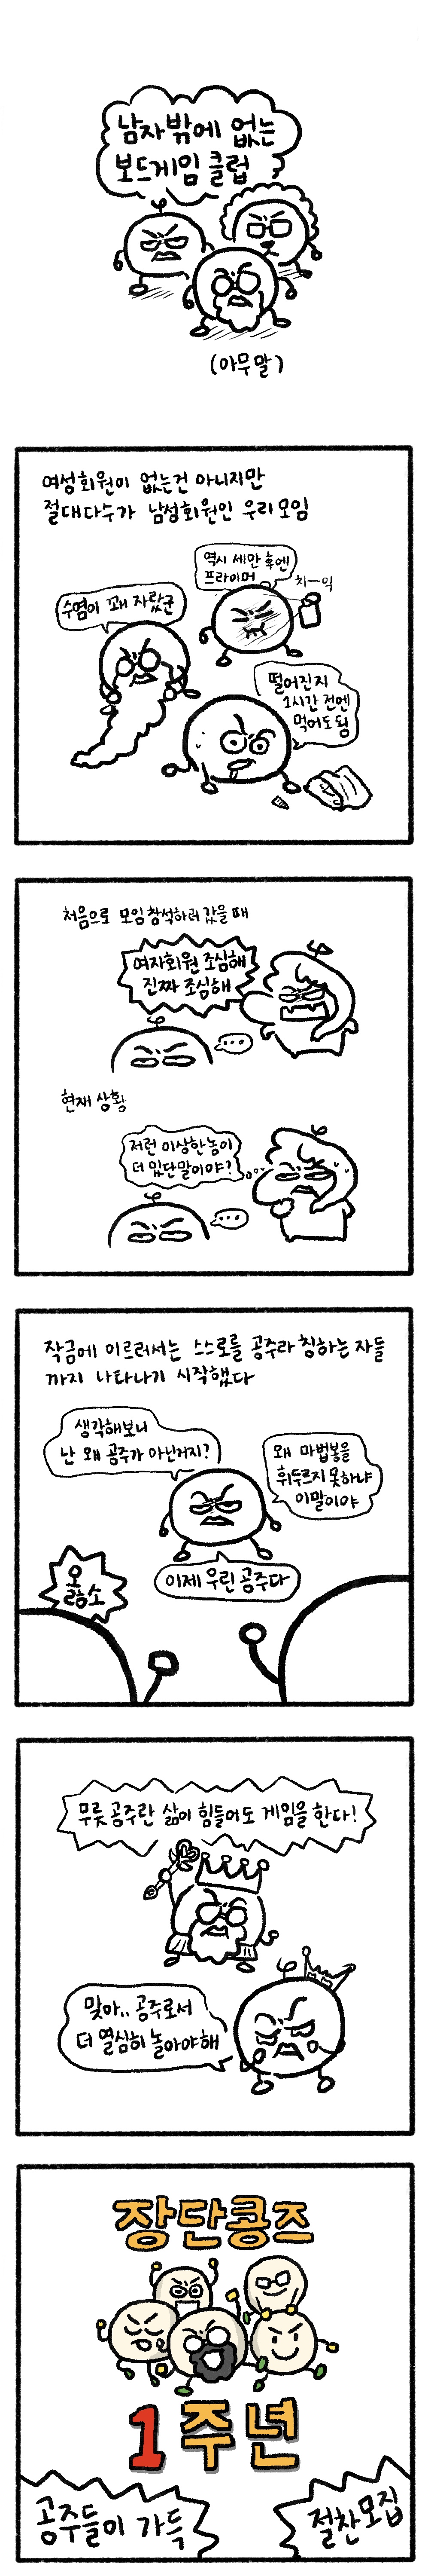 남자밖에 없는
보드게임 클럽
(아무말)
여성회원이 없는건 아니지만
절대다수가 남성회원인 우리모임
역시 세안 후엔
프라이머
치-익
수염이 꽤 자랐군
떨어진지
1시간 전엔
먹어도 됨
처음으로 모임 참석하러 갔을 때
여자회원 조심해
진짜 조심해
...
현재 상황
저런 이상한놈이
더 있단말이야?
...
작금에 이르러서는 스스로를 공주라 칭하는 자들
까지 나타나기 시작했다
생각해보니
난 왜 공주가 아닌거지?
왜 마법봉을
휘두르지 못하냐
이말이야
이제 우린 공주다
옳소
무릇 공주란 삶이 힘들어도 게임을 한다!
맞아.. 공주로서
더 열심히 놀아야해
장단콩즈
1주년
공주들이 가득
절찬모집